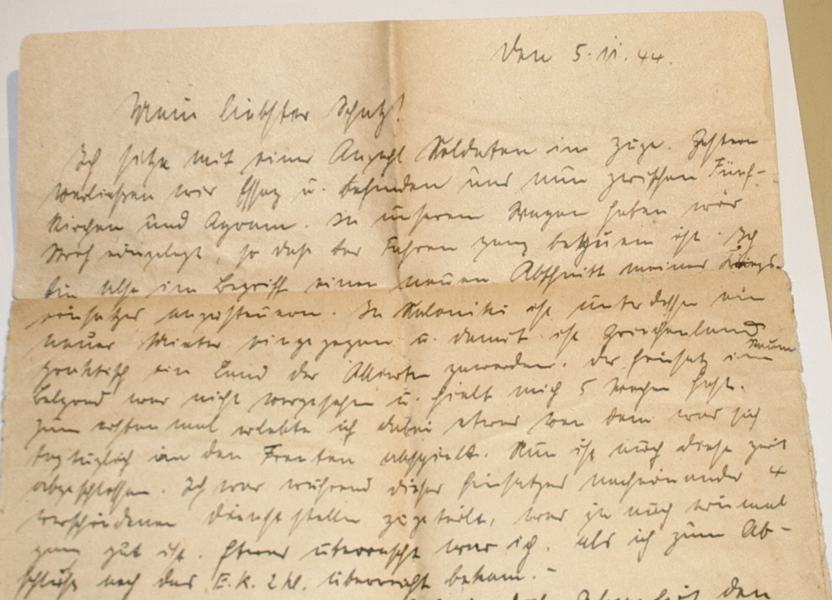 Den 5.11.44.
Mein liebster Schatz!
Ich sitze mit einer Anzahl Soldaten im Zuge. Gestern
verliessen wir Essag u. befinden uns nun zwischen Fünf-
kirchen und Agram. In unserem Wagen haben wir
Stroh eingelegt, so dass das Fahren ganz bequem ist. Ich
bin also im Begriff einen neuen Abschnitt meines Kriegs-
einsatzes anzusteuern. In Saloniki ist unterdessen ein
neuer Mieter eingezogen u. damit ist Griechenland
praktisch ein Land der Alliierten geworden. Der Einsatz im Raum
Belgrad war nicht vorgesehen u. hielt mich 5 Wochen fest.
Zum ersten mal erlebte ich dabei etwas von dem was sich
tagtäglich an den Fronten abspielt. Nun ist auch diese Zeit
abgeschlossen. Ich war während dieses Einsatzes nacheinander 4
verschiedenen Dienststellen zugeteilt, was ja auch einmal
ganz gut ist. Etwas überrascht war ich, als ich zum Ab-
schluss noch das E.K. 2 Kl. überreicht bekam. -
den